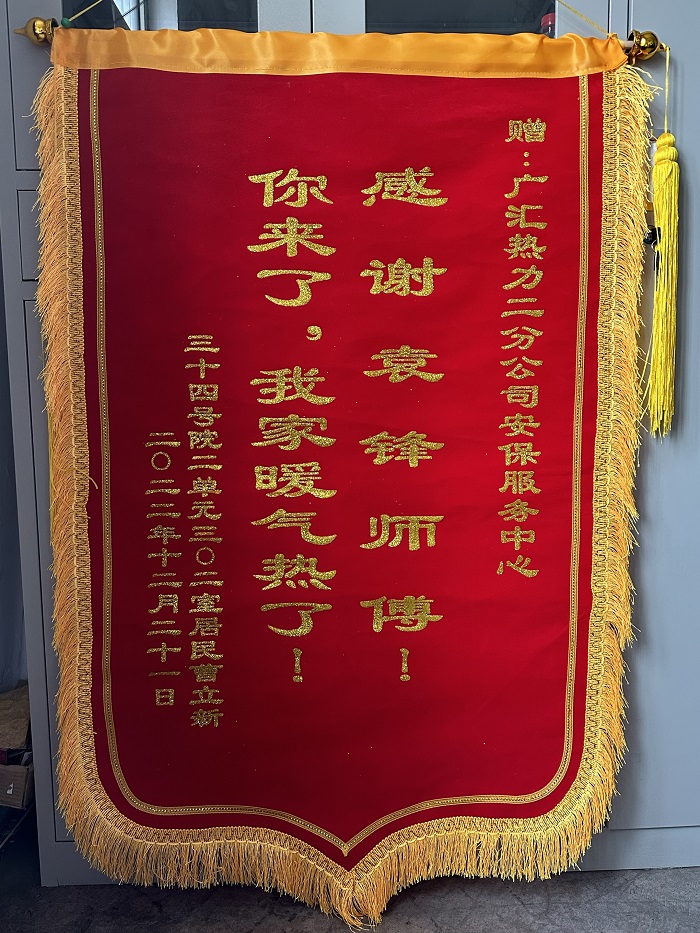 赠：广汇热力二分公司安保服务中心
感谢袁锋师傅！
你来了，我家暖气热了！
三十四号院二单元三〇二室居民曹立新
二〇二二年十二月二十一日